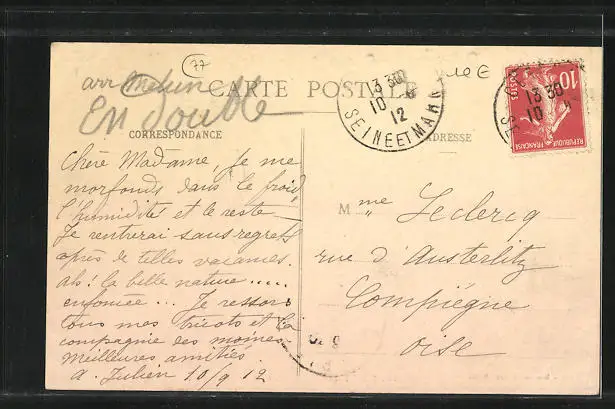 77
arr Melun
En double
CARTE POSTALE
CORRESPONDANCE
ADRESSE
Chère Madame, je me
morfonds dans le froid,
l'humidité et le reste
Je rentrerai sans regrets
après de telles vacances.
Ah! la belle nature .....
enfoncée ... Je ressors
tous mes tricots et la
compagnie des moines
Meilleures amitiés.
a. Julien 10/9 12
Mme Leclercq
rue d'Austerlitz
Compiègne
Oise
13 30
10
12
SEINE ET MARNE
10
POSTES
REPUBLIQUE FRANÇAISE
13 30
10